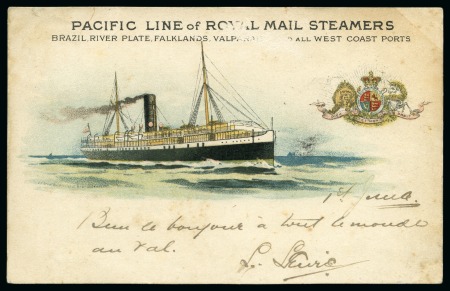 PACIFIC LINE of ROYAL MAIL STEAMERS
BRAZIL, RIVER PLATE, FALKLANDS, ALL WEST COAST PORTS
Bien le bonjour à tout le monde
au Val.